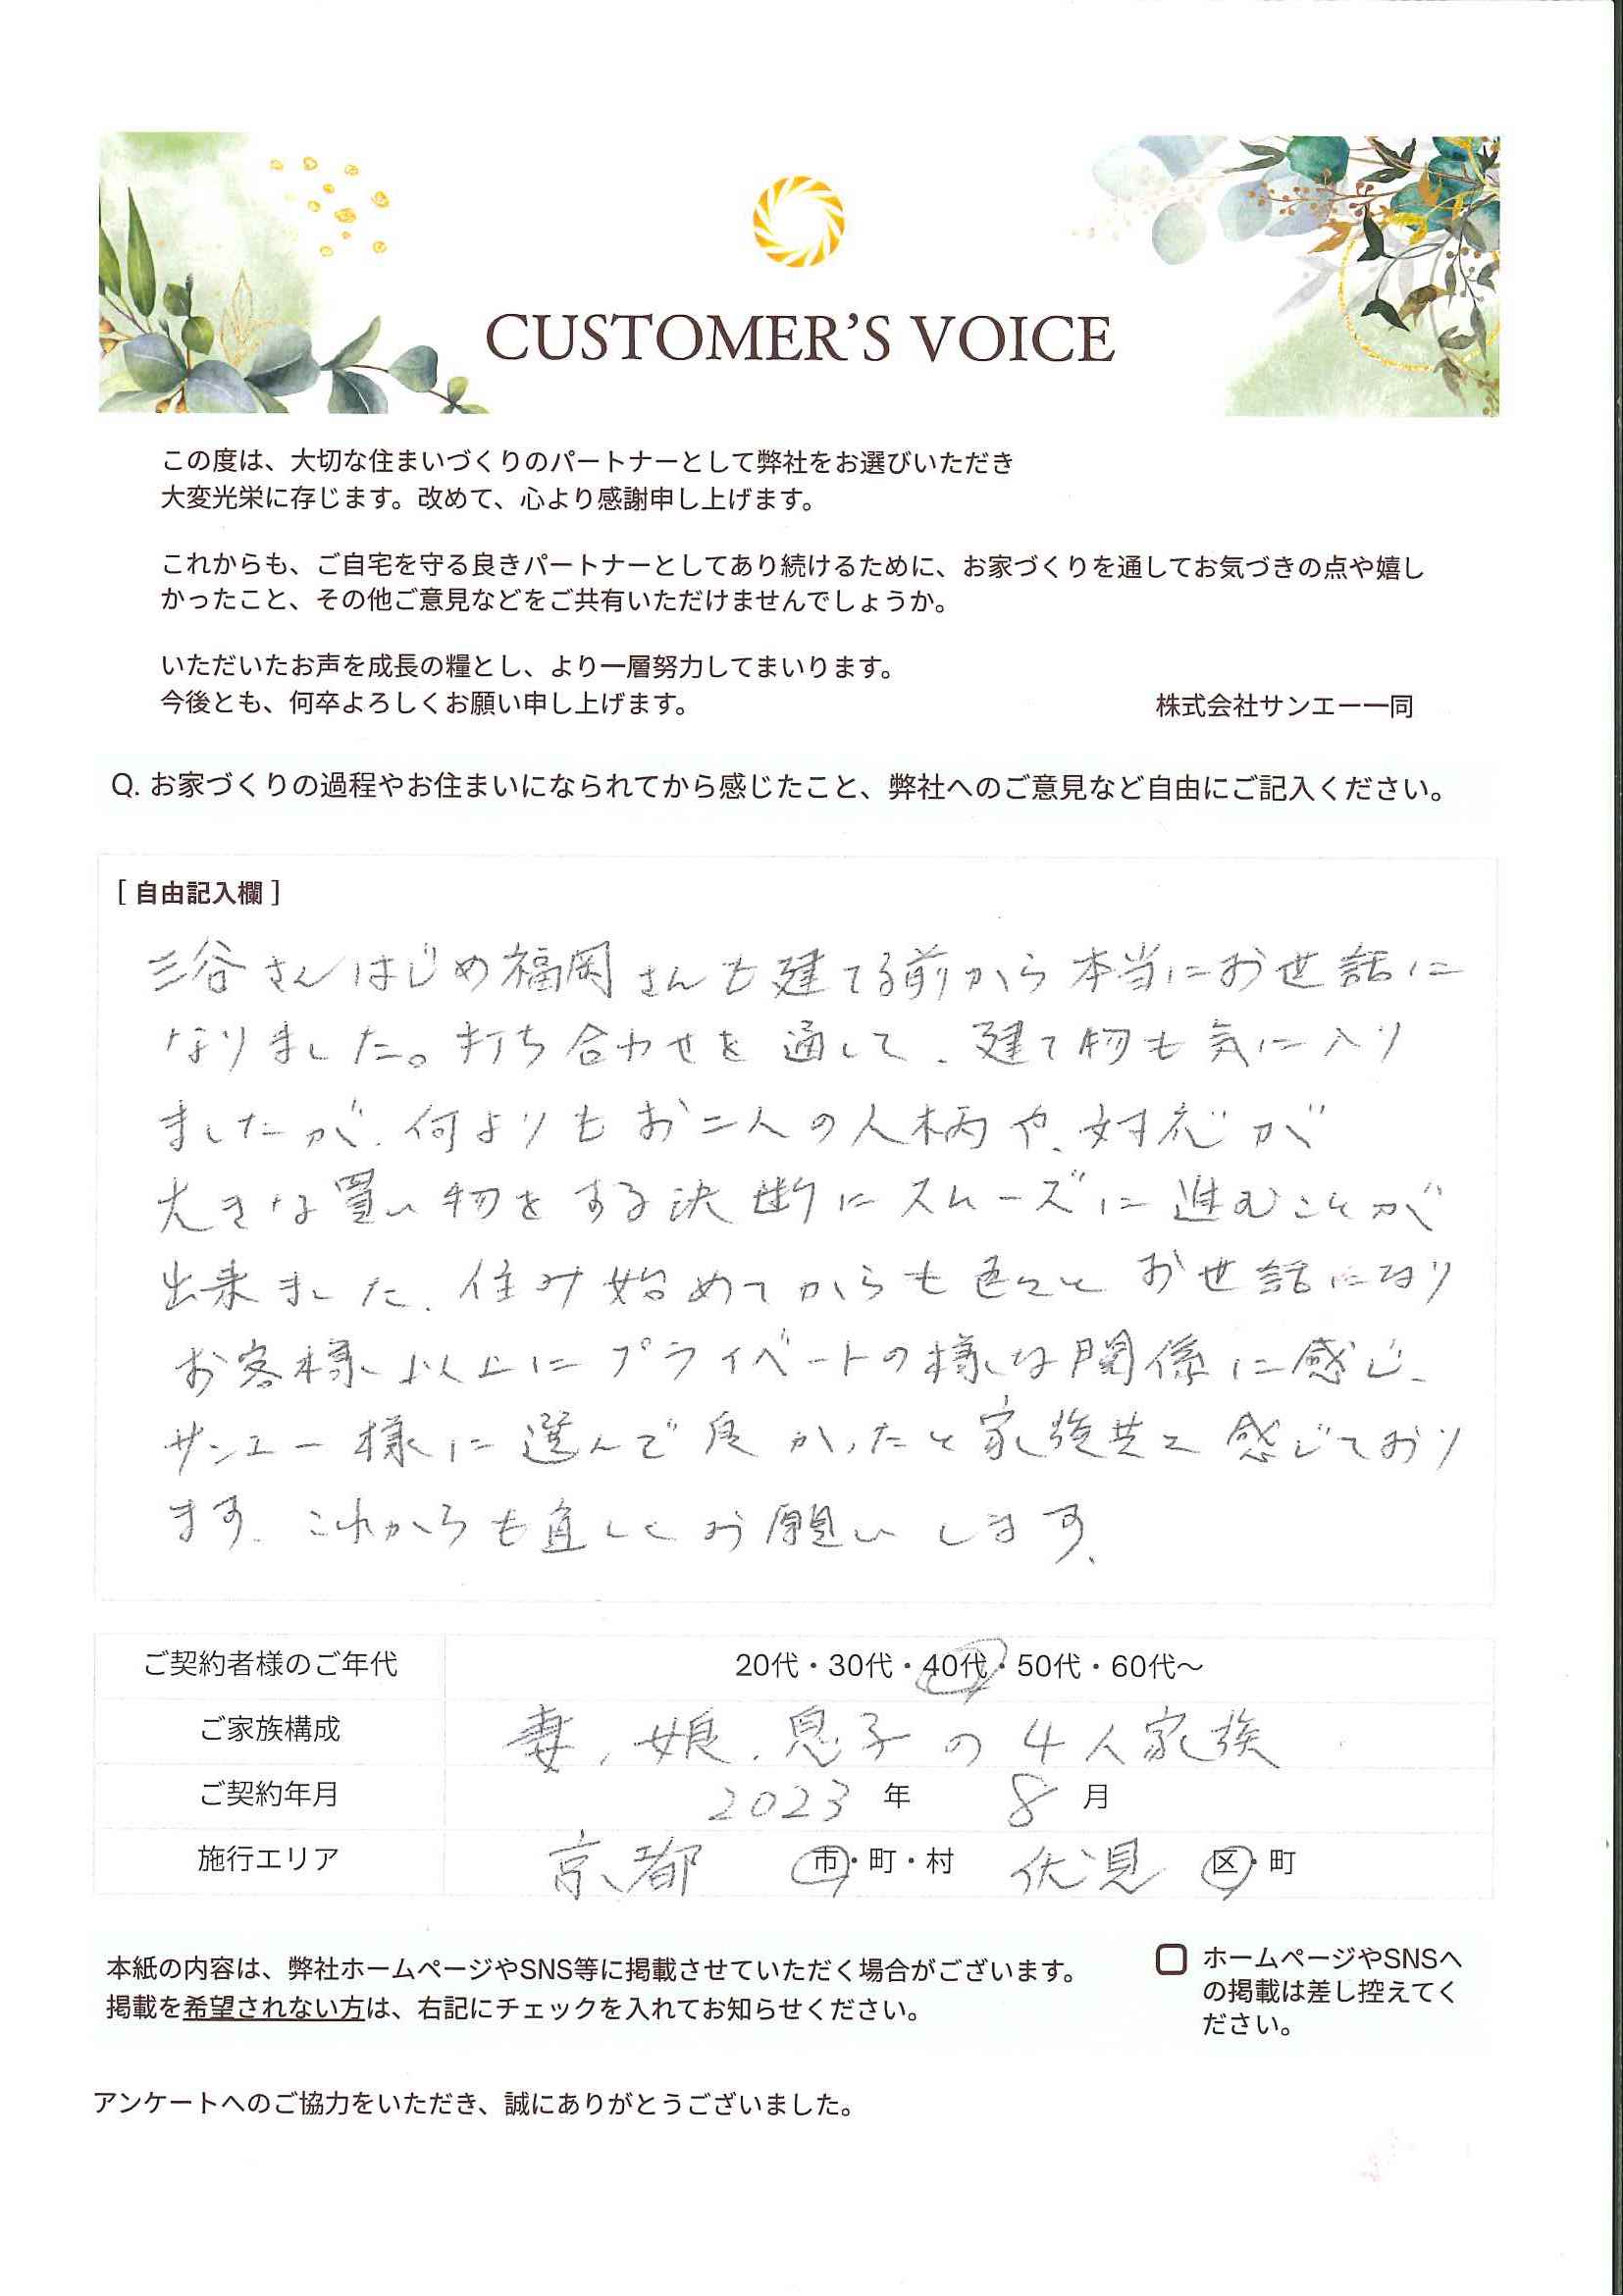 CUSTOMER'S VOICE
この度は、大切な住まいづくりのパートナーとして弊社をお選びいただき
大変光栄に存じます。改めて、心より感謝申し上げます。
これからも、ご自宅を守る良きパートナーとしてあり続けるために、お家づくりを通してお気づきの点や嬉し
かったこと、その他ご意見などをご共有いただけませんでしょうか。
いただいたお声を成長の糧とし、より一層努力してまいります。
今後とも、何卒よろしくお願い申し上げます。
株式会社サンエー一同
Q. お家づくりの過程やお住まいになられてから感じたこと、弊社へのご意見など自由にご記入ください。
[ 自由記入欄 ]
三谷さんはじめ福岡さんも建てる前から本当にお世話に
なりました。打ち合わせを通して、建て物も気に入り
ましたが、何よりもお二人の人柄や、対応が
大きな買い物をする決断にスムーズに進むことが
出来ました、住み始めてからも色々とお世話になり
お客様以上にプライベートの様な関係に感じ、
サンエー様に選んで良かったと家族共々感じており
ます、これからも宜しくお願いします、
ご契約者様のご年代 20代・30代・40代・50代・60代〜
ご家族構成 妻、娘、息子の4人家族
ご契約年月 2023 年 8 月
施行エリア 京都 市・町・村 伏見 区・町
本紙の内容は、弊社ホームページやSNS等に掲載させていただく場合がございます。
掲載を希望されない方は、右記にチェックを入れてお知らせください。
ホームページやSNSへ
の掲載は差し控えてく
ださい。
アンケートへのご協力をいただき、誠にありがとうございました。